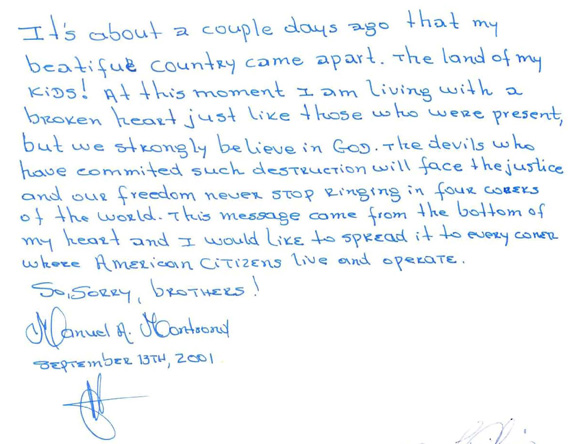 It's about a couple days ago that my
beatiful country came apart. The land of my
KIDS! At this moment I am living with a
broken heart just like those who were present,
but we strongly believe in GOD. The devils who
have commited such destruction will face the justice
and our freedom never stop ringing in four coreks
of the world. This message came from the bottom of
my heart and I would like to spread it to every coner
where American Citizens live and operate.
So, Sorry, brothers!
Manuel A.
September 13TH, 2001